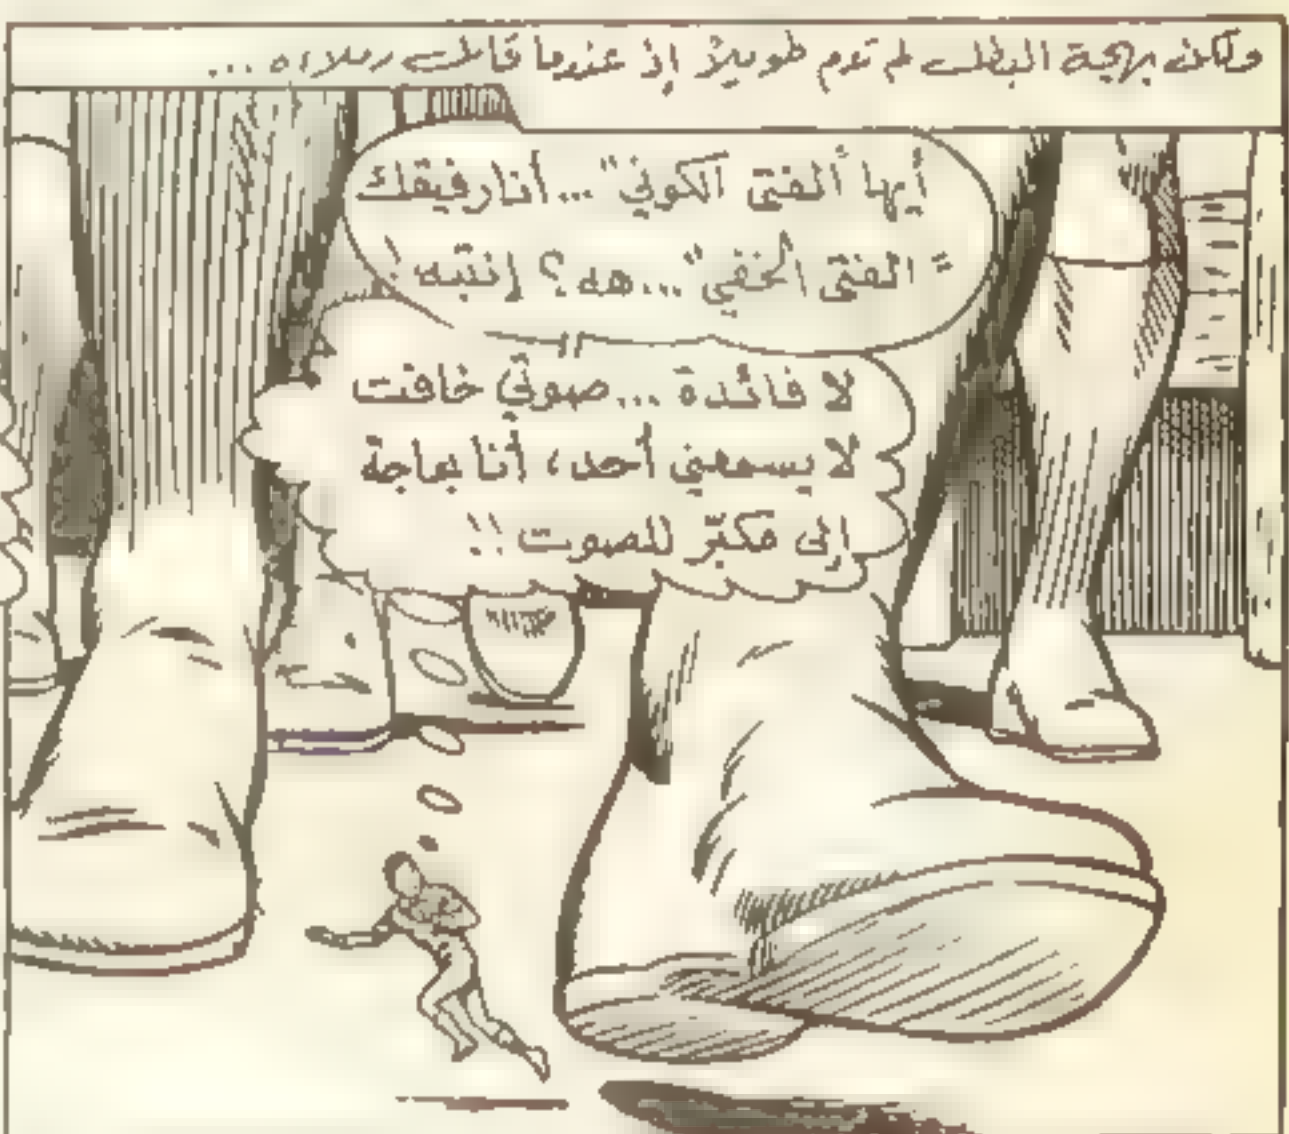 ولكن بهجة البطل لم تدم طويلاً إذ عندما قابل زملاءه ...
أيها "الفتى الكوني"... أنا رفيقك
"الفتى الخفي"... هه؟ إنتبه!
لا فائدة... صوتي خافت
لا يسمعني أحد، أنا بحاجة
إلى مكبّر للصوت!!